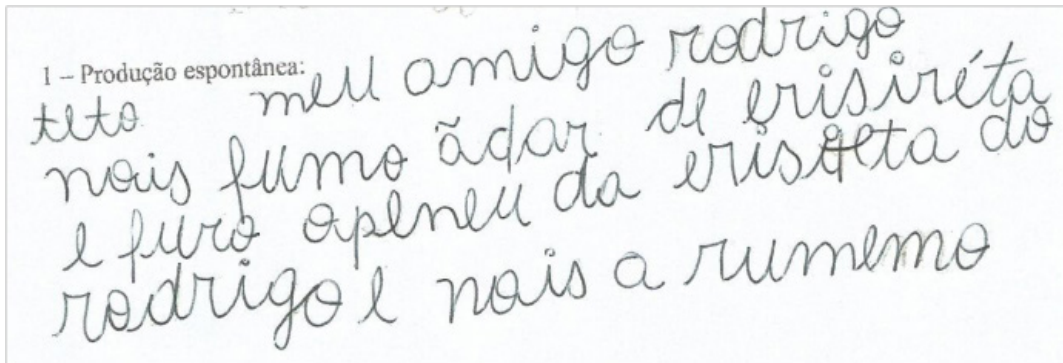 1 – Produção espontânea:
teto meu amigo rodrigo
nois fumo ãdar de erisiréta
e furo openeu da eriséta do
rodrigo e nois a rumemo